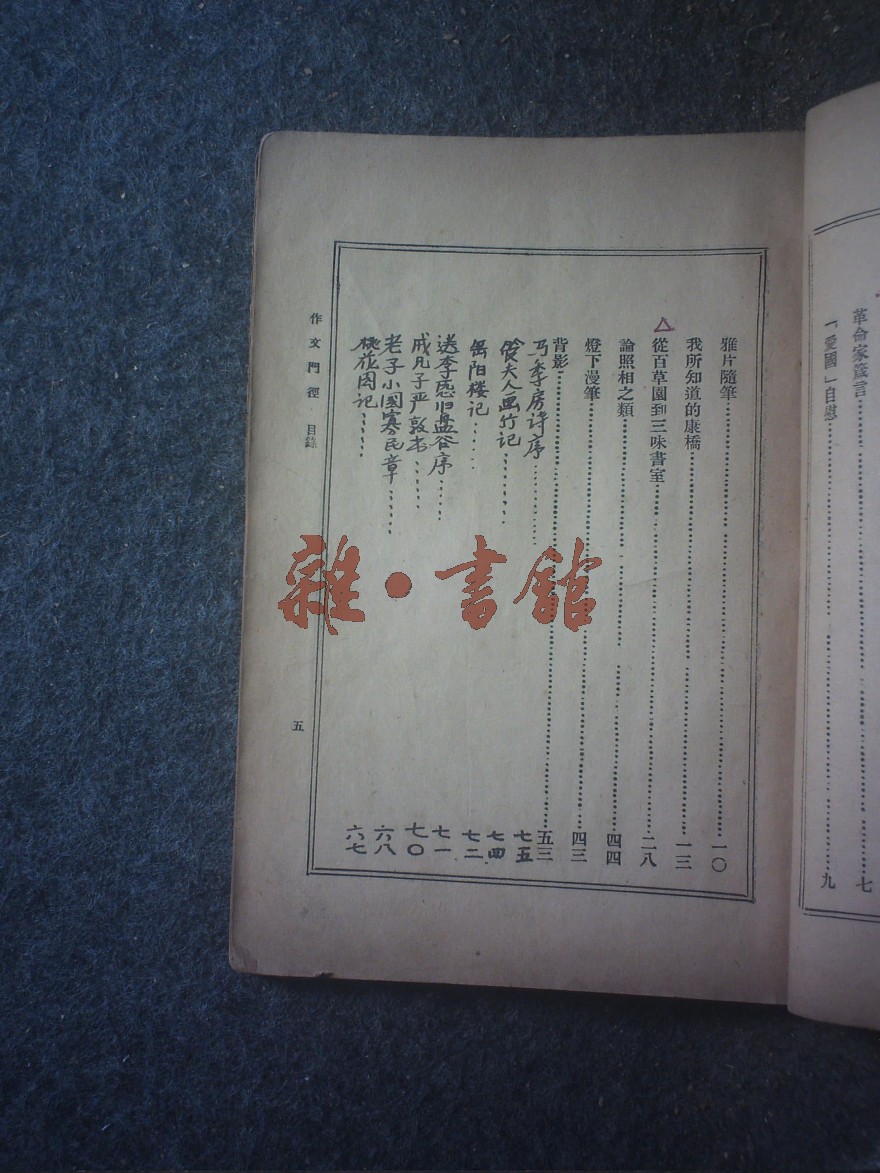 革命家箴言……七
「愛國」自慰……九
雅片隨筆……一〇
我所知道的康橋……一三
△從百草園到三味書室……二八
論照相之類……四四
燈下漫筆……四三
背影……五三
季房诗序……七五
夫人画竹记……七四
岳阳楼记……七二
送李愿归盘谷序……七一
戒兄子严敦书……七〇
老子小国寡民章……六八
桃花园记……六七
作文門徑 目錄
五
雜·書館